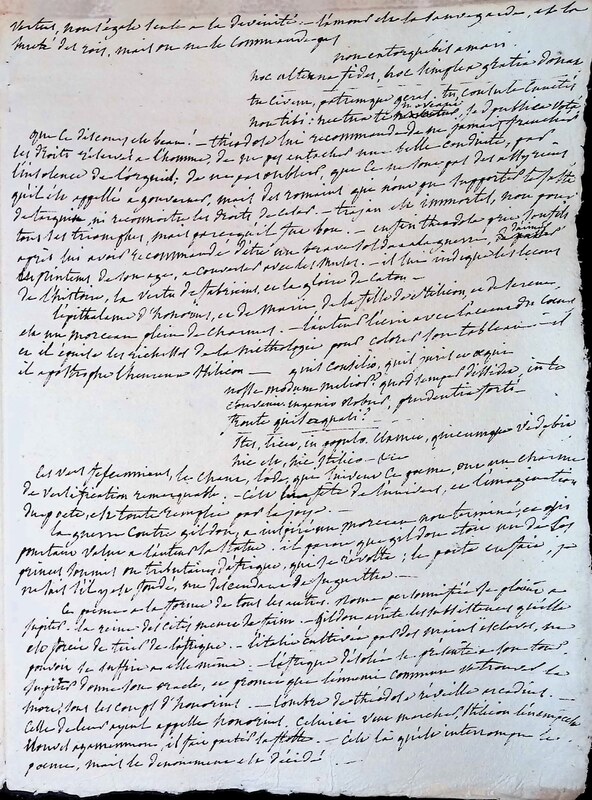 vertus, nous égale seule a la divinité. - l'amour est la sauvegarde, et la
sureté des rois, mais on ne le commande pas
non extorquebis amari.
hoc alterna fides, hoc simplex gratia donat
tu civem, patremque geras. tu consule cunctis
non tibi: nec tua te moveant, sed publica vota
que ce discours est beau! - theodose lui recommande de ne jamais
les droits réservés a l'homme, de ne pas entacher une belle conduite, par
l'insolence de l'orgueil; de ne pas oublier, que ce ne sont pas des assyriens
qu'il est appellé a gouverner, mais des romains que n'ont pu supporter le faste
de tarquin, ni reconnoitre les droits de cesar. - trajan est immortel, non pour
tous ses triomphes, mais parce qu'il fut bon. - enfin theodose
après lui avoir recommandé d'être un brave soldat a la guerre,
le printems de son age, a converser avec les muses. - il lui indique les secours
de l'histoire, la vertu de fabricius, et la gloire de caton -
l'épithalame d'honorius, et de marie de la fille de stilicon, et de serene,
est un morceau plein de charmes. - l'auteur l'écrit avec l'accent du coeur
et il épuise les richesses de la mithologie pour colorer son tableau - et
il apostrophe l'heureux stilicon - quis consilio, quis juris et aequi
nosse modum melior? quod semper dissidet, in te
convenit, ingenio robur, prudentia forti.
fronte quis aequali?
ite, licet, in populo, clamet, quicumque videbit
hic est, hic stilico -
ces vers fescennins, le chant, l'ode, qui suivent ce poeme, ont un charme
de versification remarquable. - c'est la fête de l'univers, et l'imagination
du poete, est toute remplie par la joye. -
la guerre contre gildon, a inspiré un morceau non terminé, et qui
pourtant valut a l'auteur sa statue. il paroit que gildon etoit un de ces
princes soumis ou tributaires d'afrique, qui se révolta; le poete en fait, je
ne sais s'il y est fondé, un descendant de jugurtha. -
ce poeme a la forme de tous les autres. rome personnifiée se plaint, a
jupiter. la reine des cités meurt de faim. - gildon arrête les subsistances qu'elle
est forcée de tirer de l'afrique. - l'italie cultivée par des mains esclaves, ne
pouvoit se suffire a elle même. - l'afrique désolée se présente a son tour.
jupiter donne son oracle, et promet que l'ennemi commun va trouver la
mort, sous les coups d'honorius. - l'ombre de theodose réveille arcadius. -
celle de leur ayeul appelle honorius. celui ci veut marcher, stilicon l'en empeche
nouvel agamemnon, il fait partir la flotte. - c'est là qu'est interrompu le
poeme, mais le denouement est décidé -